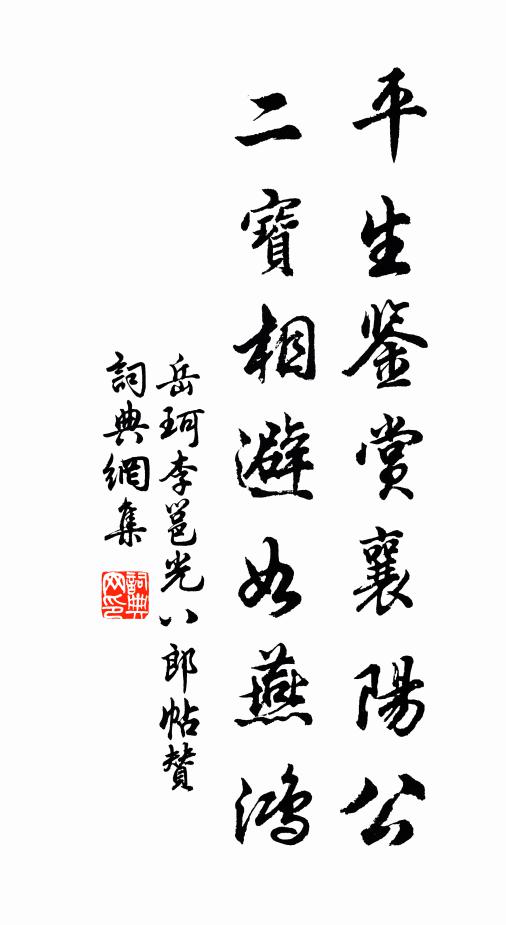 平生鉴赏襄陽公
二寶相避如燕鴻
岳珂李邕光八郎帖贊
詞典網集
詞典網印